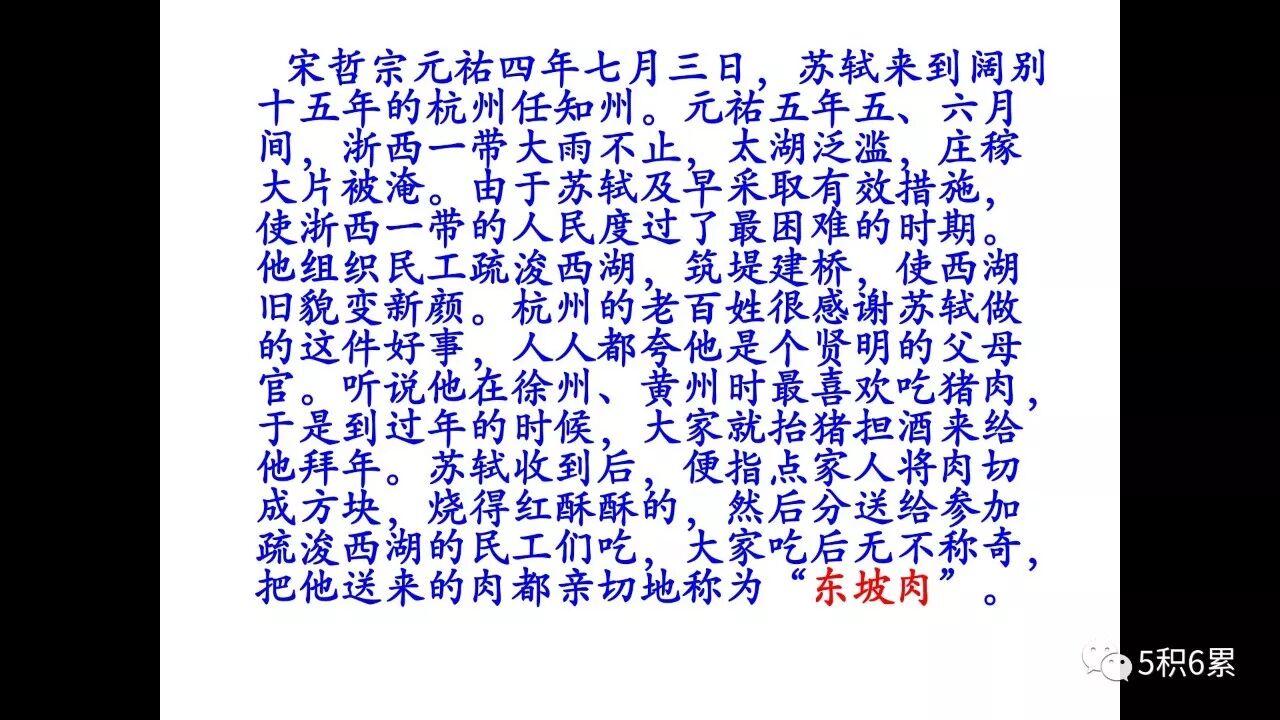 宋哲宗元祐四年七月三日，苏轼来到阔别
十五年的杭州任知州。元祐五年五、六月
间，浙西一带大雨不止，太湖泛滥，庄稼
大片被淹。由于苏轼及早采取有效措施，
使浙西一带的人民度过了最困难的时期。
他组织民工疏浚西湖，筑堤建桥，使西湖
旧貌变新颜。杭州的老百姓很感谢苏轼做
的这件好事，人人都夸他是个贤明的父母
官。听说他在徐州、黄州时最喜欢吃猪肉，
于是到过年的时候，大家就抬猪担酒来给
他拜年。苏轼收到后，便指点家人将肉切
成方块，烧得红酥酥的，然后分送给参加
疏浚西湖的民工们吃，大家吃后无不称奇，
把他送来的肉都亲切地称为“东坡肉”。
5积6累